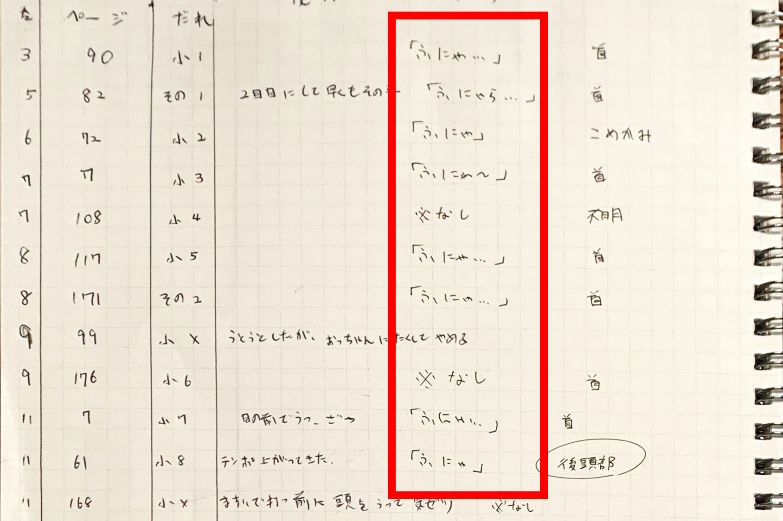 ページ だれ
3 90 小1 「ふにゃ…」 首
5 82 その1 2日目にして早くもその 「ふにゃら…」 首
6 72 小2 「ふにゃ」 こめかみ
7 7 小3 「ふにゃ〜」 首
7 108 小4 ※なし 不明
8 117 小5 「ふにゃ…」 首
8 171 その2 「ふにゃ…」 首
9 99 小× うとうとしたが、おっちゃんに たくして やめる
9 176 小6 ※なし 首
11 7 小7 目の前でうつ 「ふにゃ…」 首
11 61 小8 テンポ上がってきた. 「ふにゃ」 後頭部
11 168 小× 前に 頭をうって ※なし